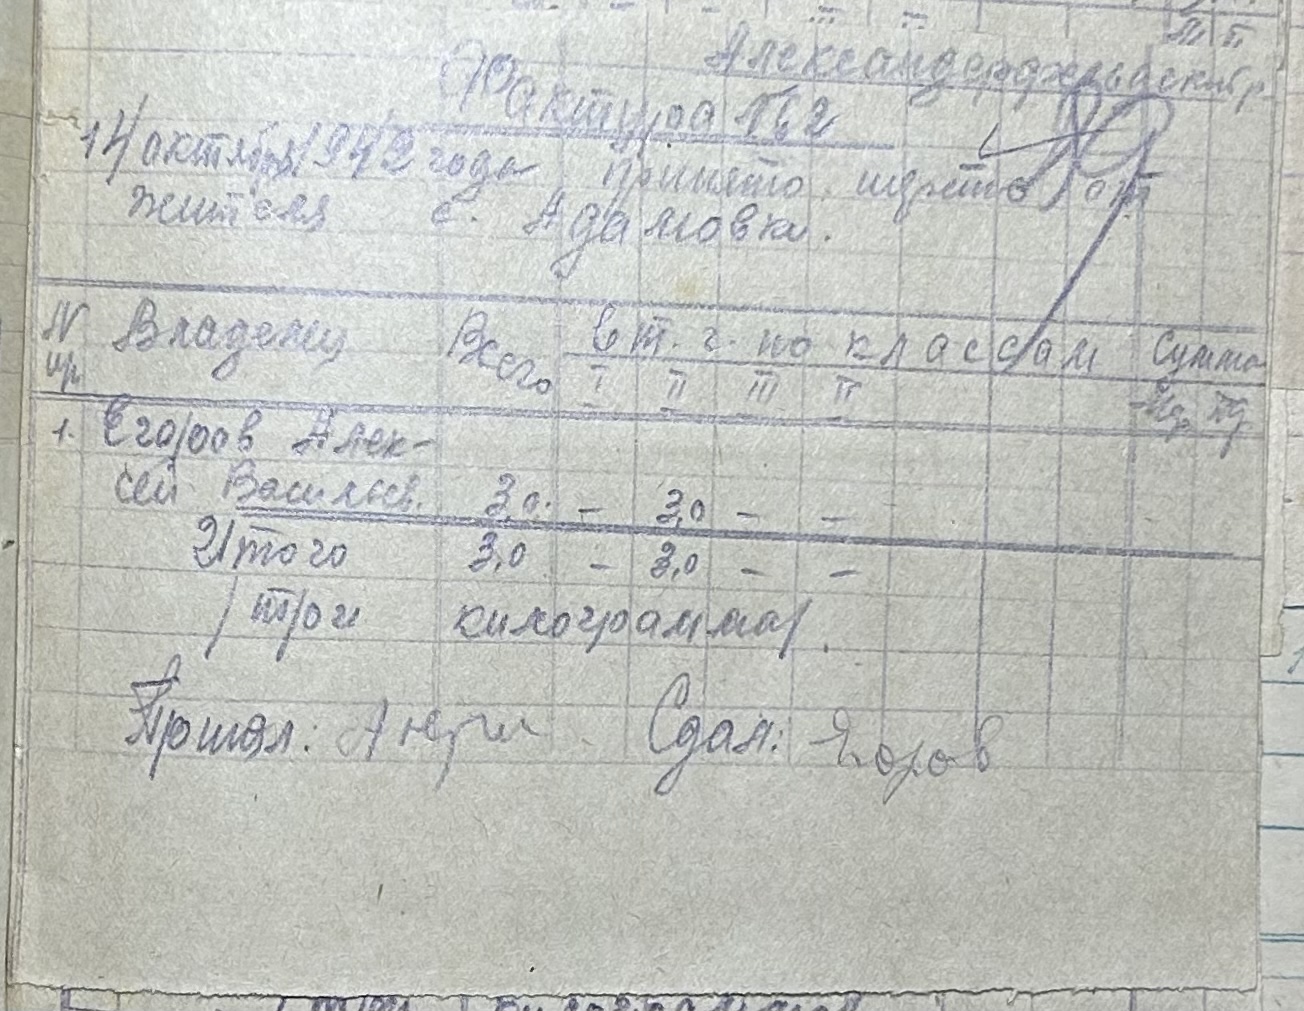 Александерфельдский р.
Фактура №2
14/октября/1942 года принято шерсть от
жителя с. Адамовка.
N Владелец Всего в т.ч. по классам Сумма
пр. I II III IV
1. Егоров Алек-
сей Васильев. 3,0. - 3,0 - -
Итого 3,0 - 3,0 - -
/три килограмма/.
Принял: Сдал: Егоров